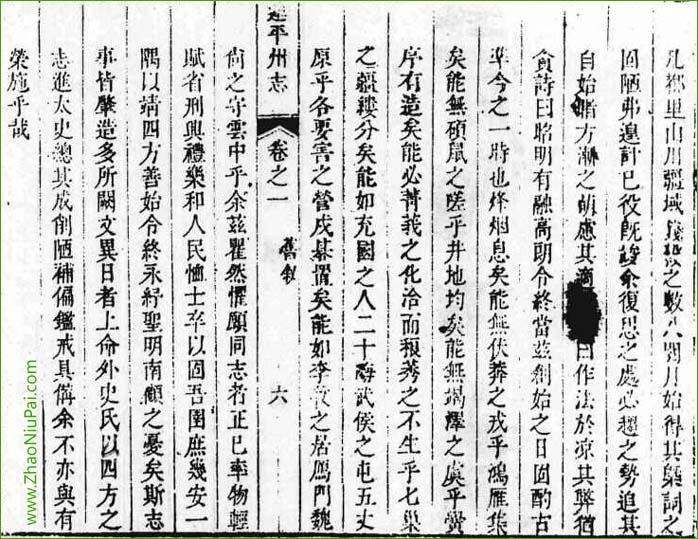 凡都里山川疆域錢之數八閱月始得其槩詞之
固陋弗遑計已役旣竣余復思之處必趨之勢追其
自始睹方漸之萌慮其適曰作法於凉其弊猶
貪詩曰昭明有融高朗令終當茲創始之日固酌古
準今之一時也烽烟息矣能無伏莽之戎乎鴻雁集
矣能無碩鼠之嗟乎井地均矣能無竭澤之虞乎黌
序有造矣能必菁莪之化洽而稂莠之不生乎七巢
之疆縷分矣能如充國之人二十畝武侯之屯五丈
原乎各要害之當戍棊置矣能如李牧之居鴈門魏
連平州志
卷之一
舊敘
六
尚之守雲中乎余茲瞿然懼願同志者正已率物輕
賦省刑興禮樂和人民恤士卒以固吾圉庶幾安一
隅以靖四方善始令終永紓聖明南顧之憂矣斯志
事皆肇造多所闕文異日者上命外史氏以四方之
志進太史總其成削陋補偏鑑戒具備余不亦與有
榮施乎哉
www.ZhaoNiuPai.com